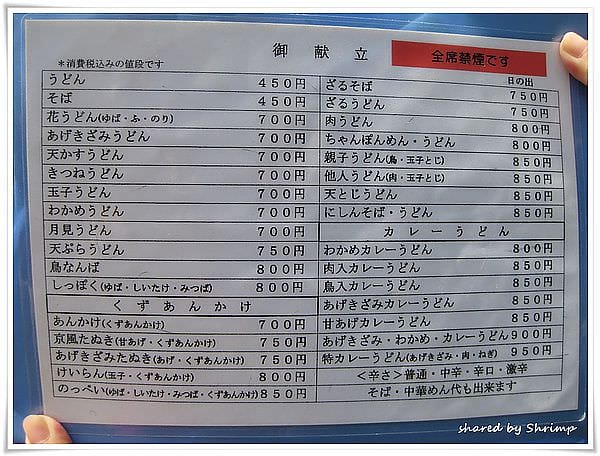 御献立
全席禁煙です
＊消費税込みの値段です
日の出
うどん 450円
そば 450円
花うどん(ゆば・ふ・のり) 700円
あげきざみうどん 700円
天かすうどん 700円
きつねうどん 700円
玉子うどん 700円
わかめうどん 700円
月見うどん 700円
天ぷらうどん 750円
鳥なんば 800円
しっぽく(ゆば・しいたけ・みつば) 800円
くずあんかけ
あんかけ(くずあんかけ) 700円
京風たぬき(甘あげ・くずあんかけ) 750円
あげきざみたぬき(あげ・くずあんかけ) 750円
けいらん(玉子・くずあんかけ) 800円
のっぺい(ゆば・しいたけ・みつば・くずあんかけ) 850円
ざるそば 750円
ざるうどん 750円
肉うどん 800円
ちゃんぽんめん・うどん 800円
親子うどん(鳥・玉子とじ) 850円
他人うどん(肉・玉子とじ) 850円
天とじうどん 850円
にしんそば・うどん 850円
カレーうどん
わかめカレーうどん 800円
肉入カレーうどん 850円
鳥入カレーうどん 850円
あげきざみカレーうどん 850円
甘あげカレーうどん 850円
あげきざみ・わかめ・カレーうどん 900円
特カレーうどん(あげきざみ・肉・ねぎ) 950円
＜辛さ＞普通・中辛・辛口・激辛
そば・中華めん代も出来ます
shared by Shrimp